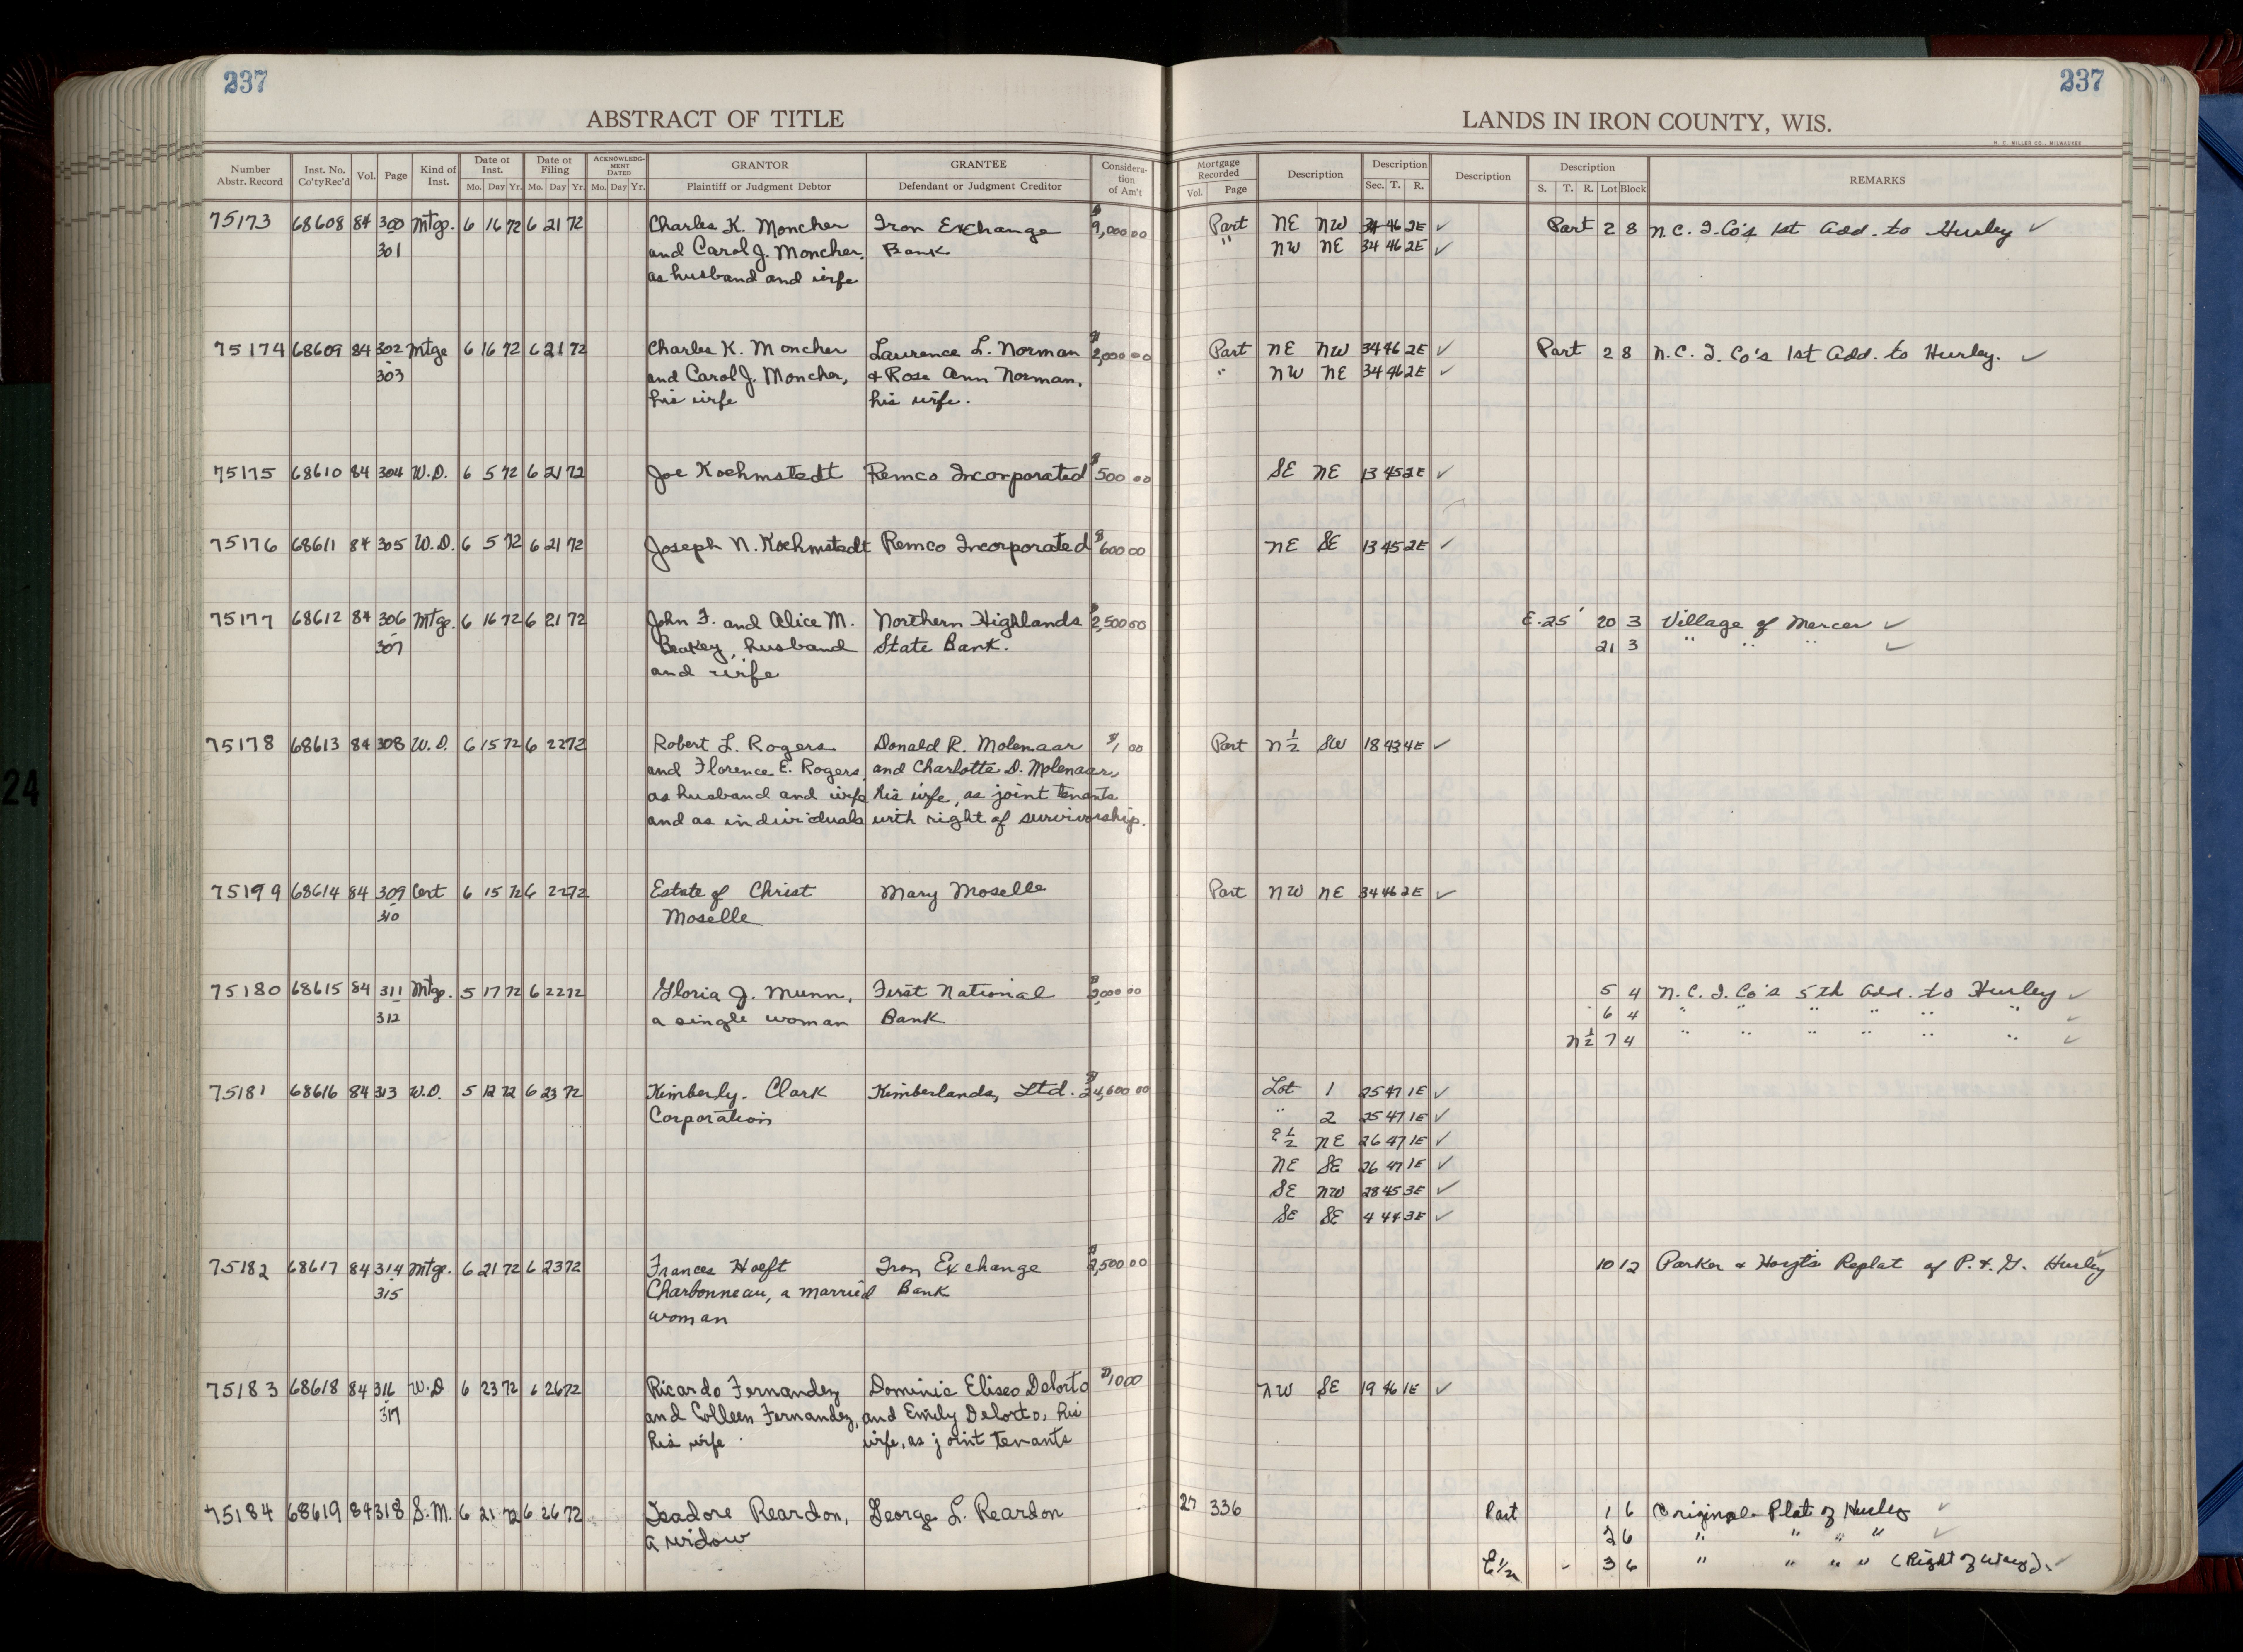 237
237
ABSTRACT OF TITLE
LANDS IN IRON COUNTY, WIS.
H. C. MILLER CO., MILWAUKEE
Number Abstr. Record | Inst. No. Co'ty Rec'd | Vol. | Page | Kind of Inst. | Date of Inst. Mo. Day Yr. | Date of Filing Mo. Day Yr. | ACKNOWLEDGMENT DATED Mo. Day Yr. | GRANTOR Plaintiff or Judgment Debtor | GRANTEE Defendant or Judgment Creditor | Consideration of Am't | Mortgage Recorded Vol. Page | Description | Description Sec. T. R. | Description | Description S. T. R. Lot Block | REMARKS
75173 68608 84 300 Mtge. 6 16 72 6 21 72 Charles K. Moncher Iron Exchange $9,000 00 Part NE NW 34 46 2E ✓ Part 2 8 N.C.I.Co's 1st Add. to Hurley ✓
301 and Carol J. Moncher, Bank " NW NE 34 46 2E ✓
as husband and wife
75174 68609 84 302 Mtge 6 16 72 6 21 72 Charles K. Moncher Laurence L. Norman $2,000 00 Part NE NW 34 46 2E ✓ Part 2 8 N.C.I.Co's 1st Add. to Hurley. ✓
303 and Carol J. Moncher, & Rose Ann Norman, " NW NE 34 46 2E ✓
his wife his wife.
75175 68610 84 304 W.D. 6 5 72 6 21 72 Joe Koehmstedt Remco Incorporated $500 00 SE NE 13 45 2E ✓
75176 68611 84 305 W.D. 6 5 72 6 21 72 Joseph N. Koehmstedt Remco Incorporated $600 00 NE SE 13 45 2E ✓
75177 68612 84 306 Mtge. 6 16 72 6 21 72 John F. and Alice M. Northern Highlands $2,500 00 E. 25' 20 3 Village of Mercer ✓
307 Beakey, husband State Bank. 21 3 " " " ✓
and wife
75178 68613 84 308 W.D. 6 15 72 6 22 72 Robert L. Rogers Donald R. Molenaar $1 00 Part N½ SW 18 43 4E ✓
and Florence E. Rogers, and Charlotte D. Molenaar,
as husband and wife his wife, as joint tenants
and as individuals with right of survivorship.
75199 68614 84 309 Cert 6 15 72 6 22 72 Estate of Christ Mary Moselle Part NW NE 34 46 2E ✓
310 Moselle
75180 68615 84 311 Mtge. 5 17 72 6 22 72 Gloria J. Munn, First National ,000 00 5 4 N.C.I.Co's 5th Add. to Hurley ✓
312 a single woman Bank 6 4 " " " " " " ✓
N½ 7 4 " " " " " " ✓
75181 68616 84 313 W.D. 5 12 72 6 23 72 Kimberly-Clark Kimberlands, Ltd. $24,600 00 Lot 1 25 47 1E ✓
Corporation " 2 25 47 1E ✓
E½ NE 26 47 1E ✓
NE SE 26 47 1E ✓
SE NW 28 45 3E ✓
SE SE 4 44 3E ✓
75182 68617 84 314 Mtge. 6 21 72 6 23 72 Frances Hoeft Iron Exchange $2,500 00 10 12 Parker & Hoyt's Replat of P. & G. Hurley ✓
315 Charbonneau, a married Bank
woman
75183 68618 84 316 W.D 6 23 72 6 26 72 Ricardo Fernandez Dominic Eliseo Delorto $10 00 NW SE 19 46 1E ✓
317 and Colleen Fernandez, and Emily Delorto, his
his wife wife, as joint tenants
75184 68619 84 318 S.M. 6 21 72 6 26 72 Isadore Reardon, George L. Reardon 27 336 Part 1 6 Original Plat of Hurley ✓
a widow 2 6 " " " " ✓
E 1/2 3 6 " " " " (Right of Way). ✓